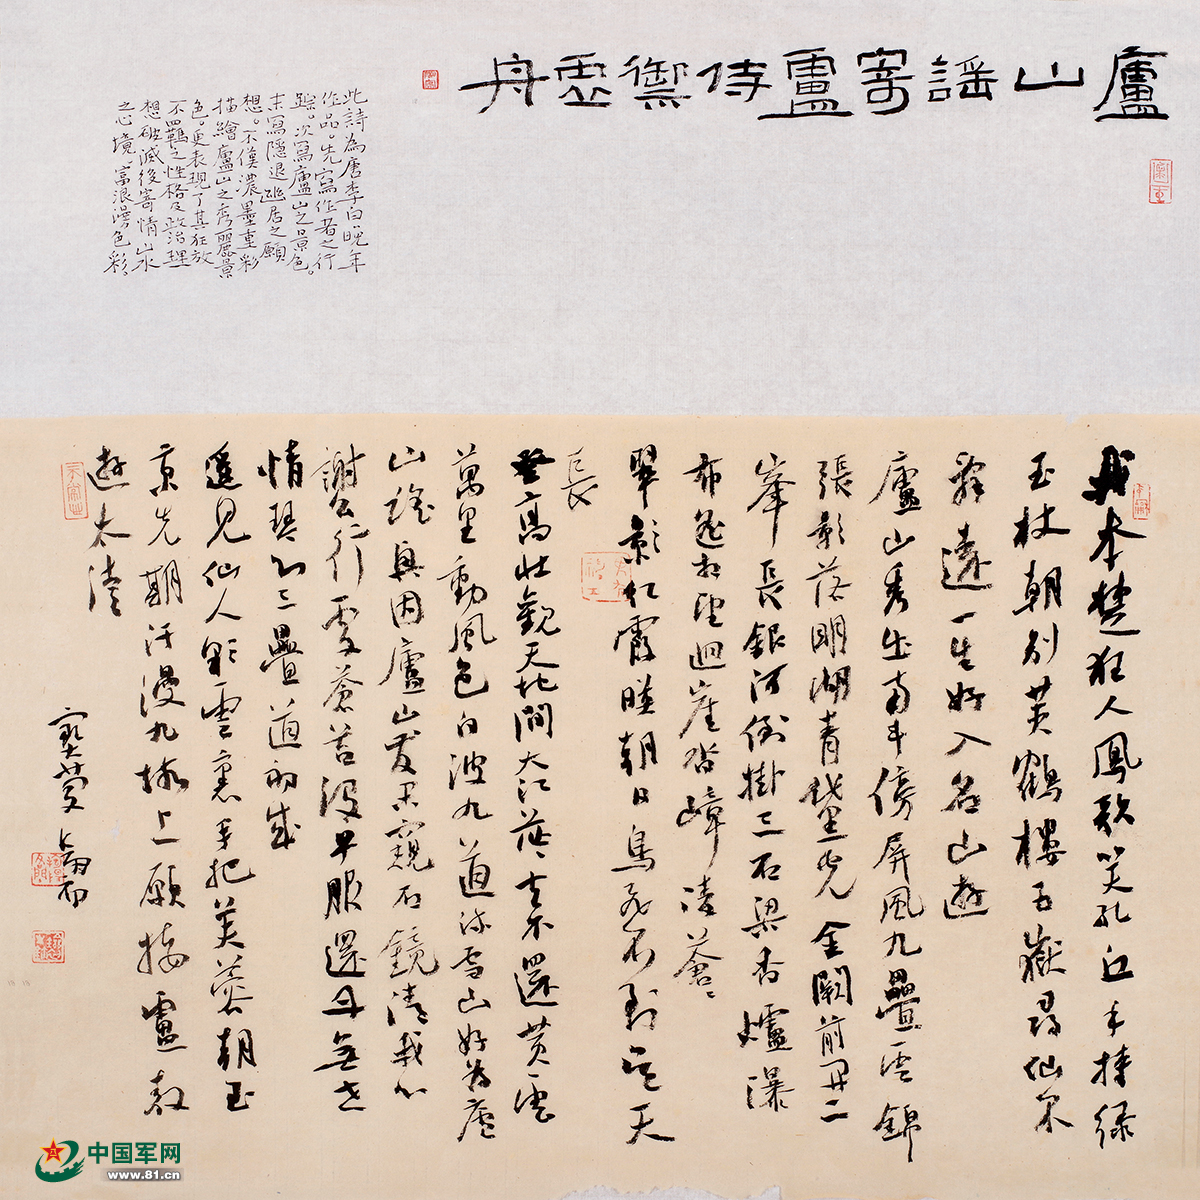 廬山謡寄盧侍禦虛舟
此詩為唐李白晚年
作品。先寫作者之行
踪。次寫廬山之景色。
末寫隱退幽居之願
想。不僅濃墨重彩
描繪廬山之秀麗景
色。更表現了其狂放
不羈之性格及政治理
想破滅後寄情山水
之心境,富浪漫色彩。
我本楚狂人鳳歌笑孔丘手持綠
玉杖朝別黃鶴樓五嶽尋仙不
辭遠一生好入名山遊
廬山秀出南斗傍屏風九疊雲錦
張影落明湖青黛光金闕前開二
峯長銀河倒掛三石梁香爐瀑
布遙相望迴崖沓嶂凌蒼々
翠影紅霞映朝日鳥飛不到吳天
長
登高壯觀天地間大江茫々去不還黃雲
萬里動風色白波九道流雪山好為廬
山謠興因廬山發閑窺石鏡清我心
謝公行處蒼苔沒早服還丹無世
情琴心三疊道初成
遙見仙人彩雲裏手把芙蓉朝玉
京先期汗漫九垓上願接盧敖
遊太清
中国军网
www.81.cn